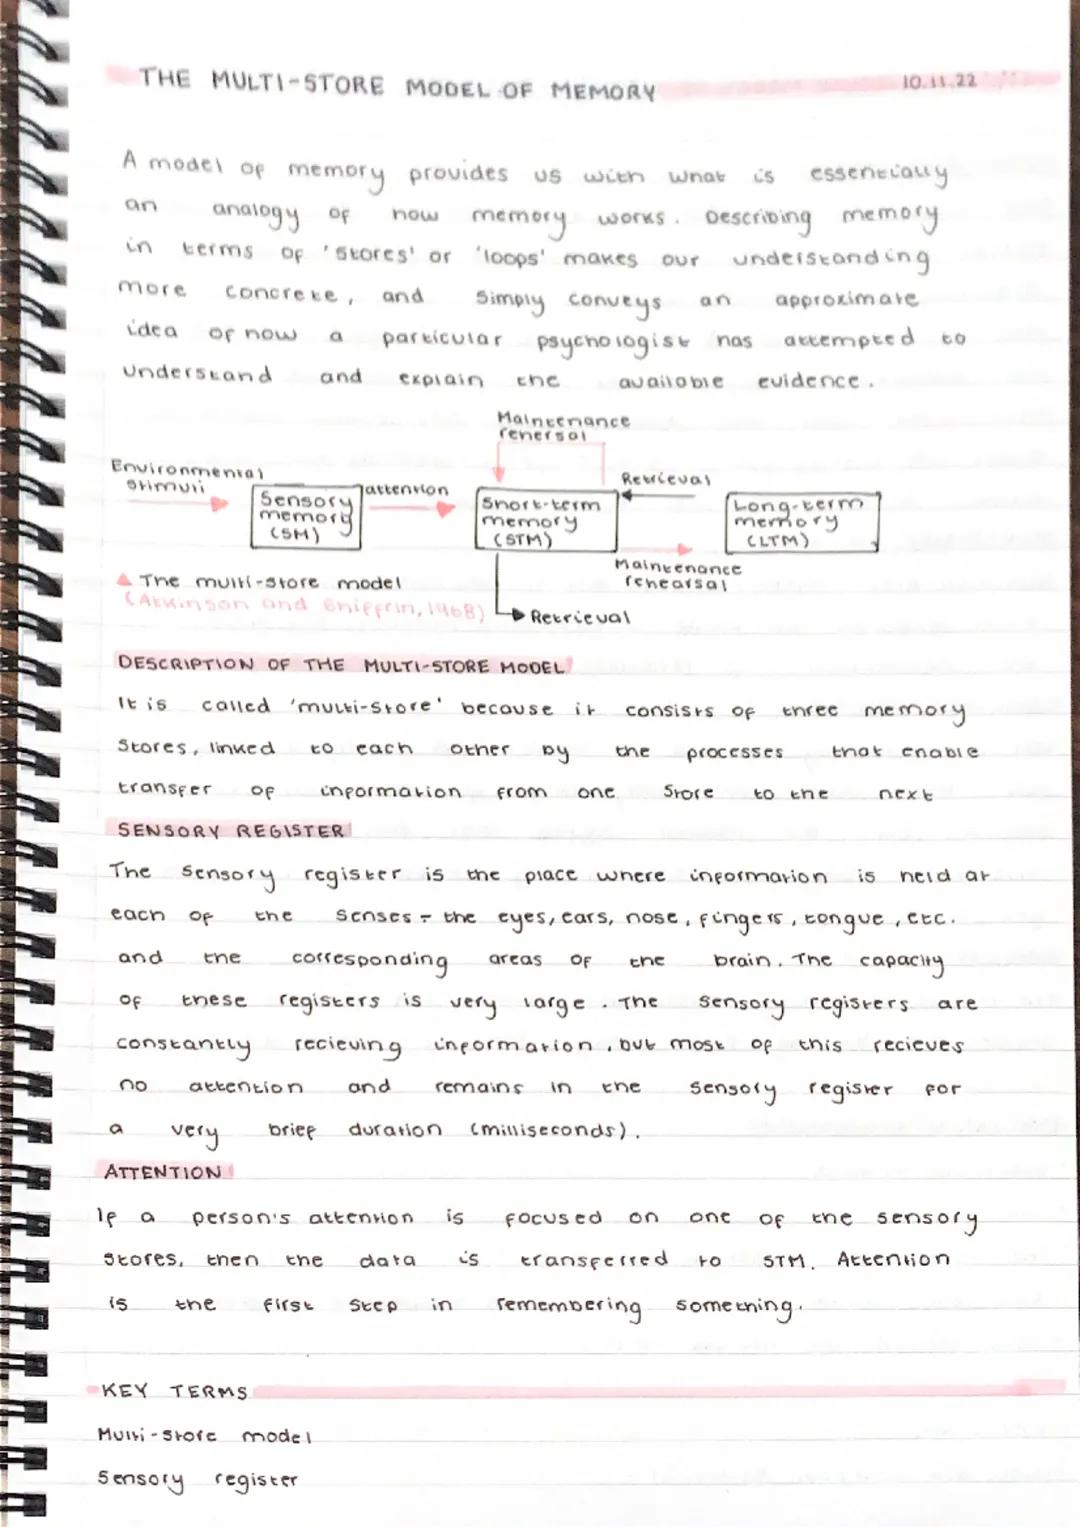 THE MULTI-STORE MODEL OF MEMORY 10.11.22
A model of memory provides us with what is essentially
an analogy of how memory works. Describing memory
in terms of 'stores' or 'loops' makes our understanding
more concrete, and simply conveys an approximate
idea of how a particular psychologist has attempted to
understand and explain the available evidence.
Maintenance
rehersal
Environmental
stimuli
attention
Retrieval
Sensory
memory
(SM)
Short-term
memory
(STM)
Long-term
memory
(LTM)
Maintenance
rehearsal
The multi-store model
(Atkinson and Shiffrin, 1968)
Retrieval
DESCRIPTION OF THE MULTI-STORE MODEL
It is called 'multi-store' because it consists of three memory
stores, linked to each other by the processes that enable
transfer of information from one store to the next
SENSORY REGISTER
The sensory register is the place where information is held at
each of the senses - the eyes, ears, nose, fingers, tongue, etc.
and the corresponding areas of the brain. The capacity
of these registers is very large. The sensory registers are
constantly recieving information, but most of this recieves
no attention and remains in the sensory register for
a very brief duration (milliseconds).
ATTENTION
If a person's attention is focused on one of the sensory
stores, then the data is transferred to STM. Attention
is the first step in remembering something.
KEY TERMS
Multi-store model
Sensory register